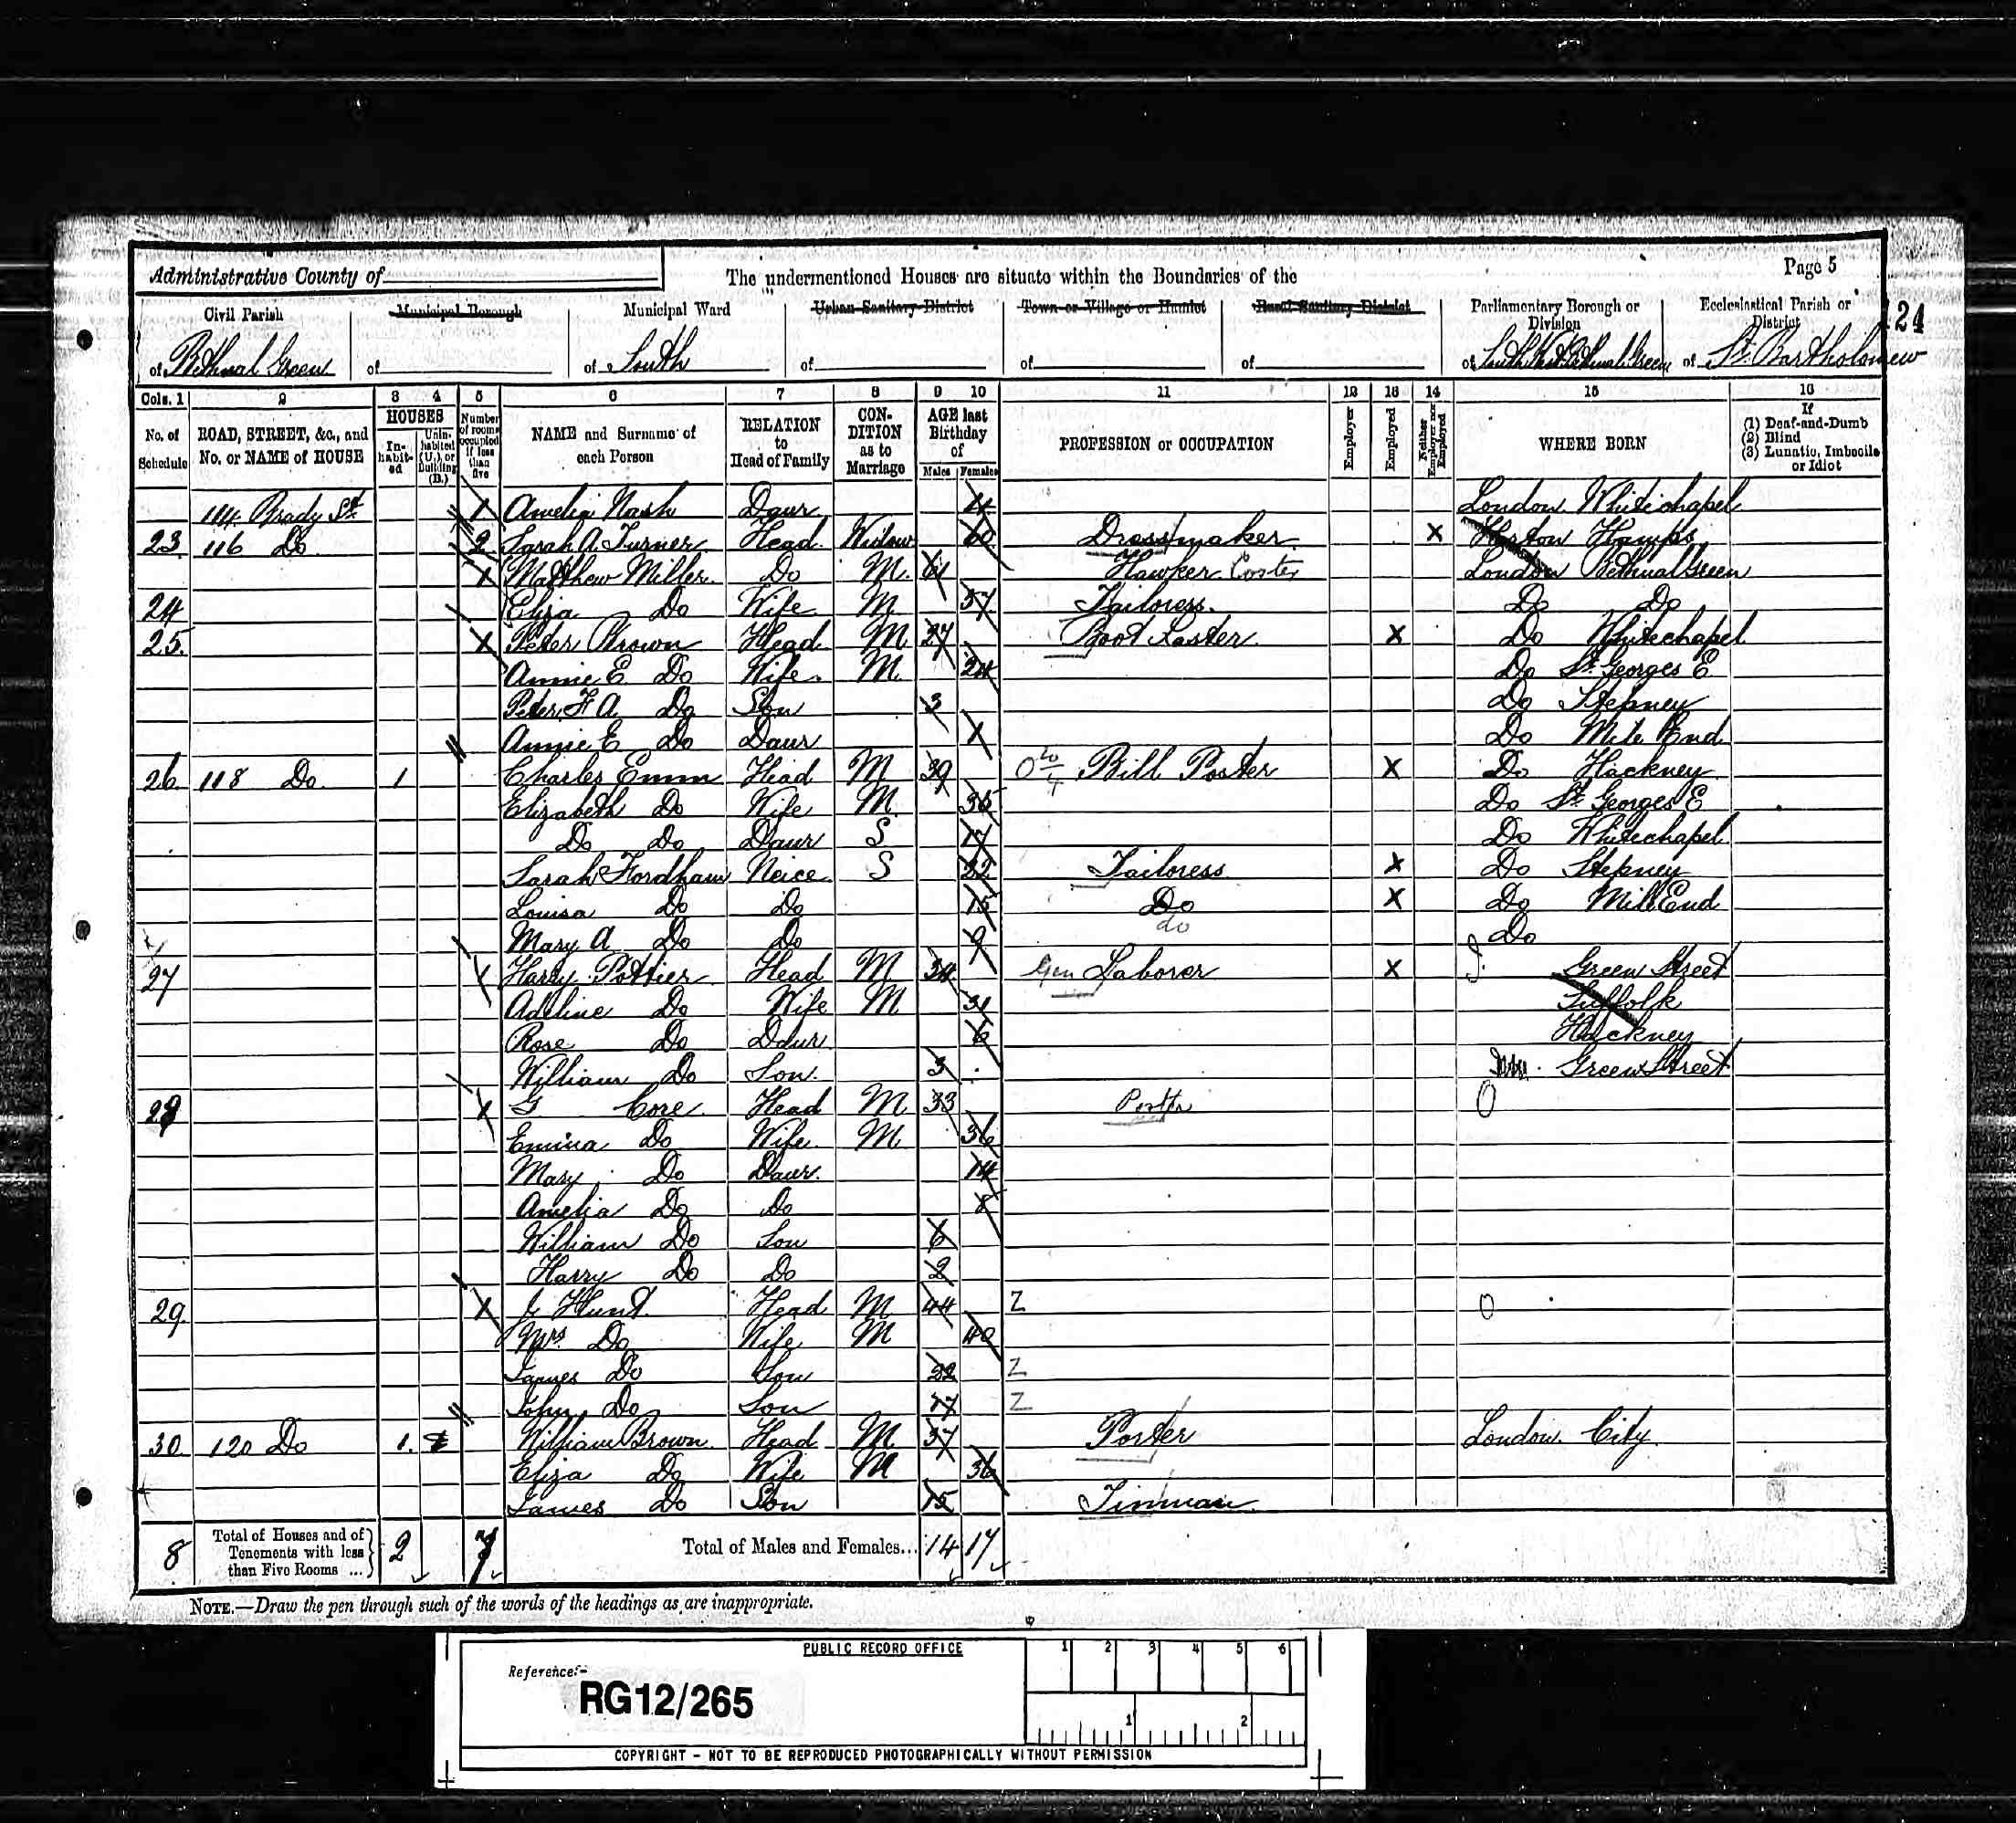 Administrative County of
The undermentioned Houses are situate within the Boundaries of the
Page 5
Civil Parish Municipal Borough Municipal Ward Urban Sanitary District Town or Village or Hamlet Rural Sanitary District Parliamentary Borough or Division Ecclesiastical Parish or District
24
of Bethnal Green of of South of of of of Bethnal Green of St. Bartholomew
Cols. 1 2 3 4 5 6 7 8 9 10 11 12 13 14 15 16
No. of Schedule ROAD, STREET, &c., and No. or NAME of HOUSE HOUSES Inhabited Uninhabited (U.), or Building (B.) Number of rooms occupied if less than five NAME and Surname of each Person RELATION to Head of Family CONDITION as to Marriage AGE last Birthday of Males Females PROFESSION or OCCUPATION Employer Employed Neither Employer nor Employed WHERE BORN If (1) Deaf-and-Dumb (2) Blind (3) Lunatic, Imbecile or Idiot
114 Brady St 1 Amelia Nash Daur 14 London Whitechapel
23 116 Do 2 Sarah A Turner Head Widow 60 Dressmaker X Hamps
1 Matthew Miller Do M 61 Hawker Coster London Bethnal Green
24 Eliza Do Wife M 57 Tailoress Do Do
25 Peter Brown Head M 27 Boot Laster X Do Whitechapel
Annie E Do Wife M 24 Do St Georges E
Peter F A Do Son 3 Do Stepney
Annie E Do Daur 1 Do Mile End
26 118 Do 1 Charles Emm Head M 39 Bill Poster X Do Hackney
Elizabeth Do Wife M 36 Do St Georges E
Do Do Daur S 17 Do Whitechapel
Sarah Fordham Neice S 22 Tailoress X Do Stepney
Louisa Do Do 15 Do X Do Mile End
Mary A Do Do 9 do Do
27 Harry Pottier Head M 34 Gen Laborer X Green Street
Adeline Do Wife M 31 Suffolk
Rose Do Daur 6 Hackney
William Do Son 3 Green Street
28 G Core Head M 33 Porter O
Emma Do Wife M 36
Mary Do Daur 14
Amelia Do Do 8
William Do Son 6
Harry Do Do 2
29 J Hunt Head M 44 Z O
Mrs Do Wife M 40
James Do Son 22 Z
John Do Son 17 Z
30 120 Do 1 William Brown Head M 37 Porter London City
Eliza Do Wife M 36
James Do Son 15 Tinman
8 Total of Houses and of Tenements with less than Five Rooms ... 2 7 Total of Males and Females... 14 17
NOTE.—Draw the pen through such of the words of the headings as are inappropriate.
PUBLIC RECORD OFFICE
1 2 3 4 5 6
Reference:-
RG12/265
1 2
COPYRIGHT - NOT TO BE REPRODUCED PHOTOGRAPHICALLY WITHOUT PERMISSION